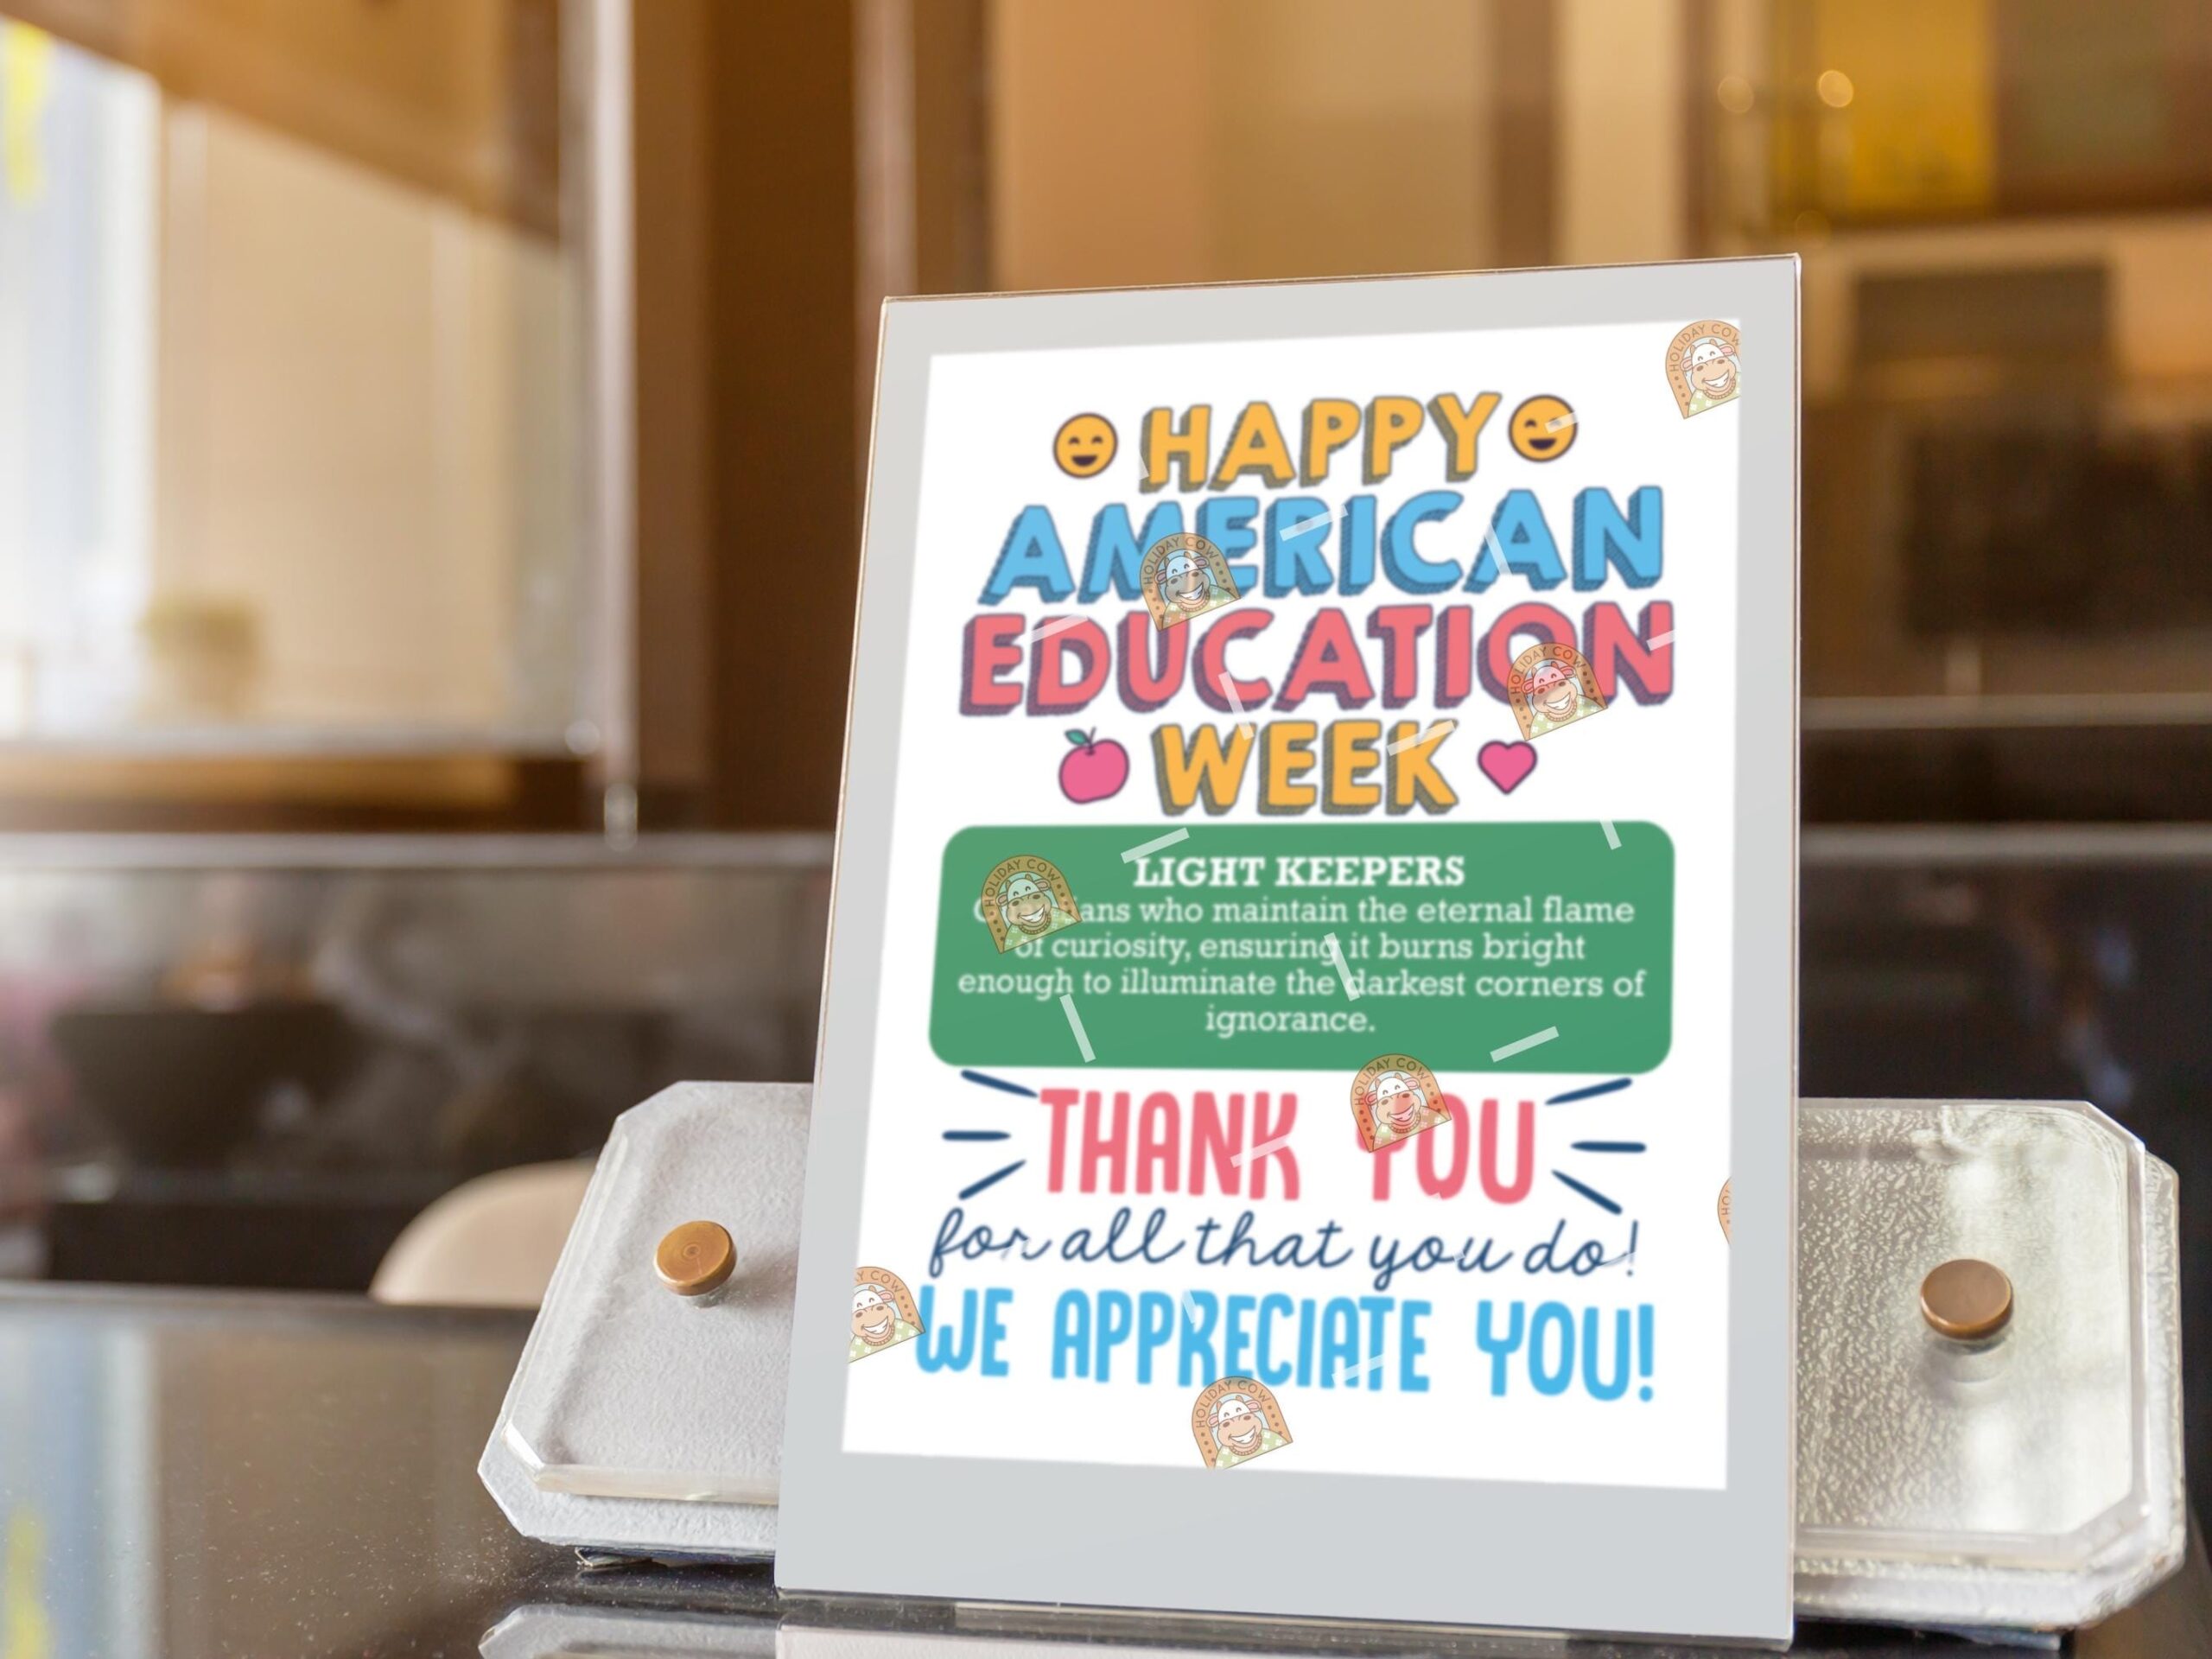 HAPPY
AMERICAN
EDUCATION
WEEK
LIGHT KEEPERS
who maintain the eternal flame
of curiosity, ensuring it burns bright
enough to illuminate the darkest corners of
ignorance.
THANK YOU
for all that you do!
WE APPRECIATE YOU!
HOLIDAY COW
HOLIDAY COW
HOLIDAY COW
HOLIDAY COW
HOLIDAY COW
HOLIDAY COW